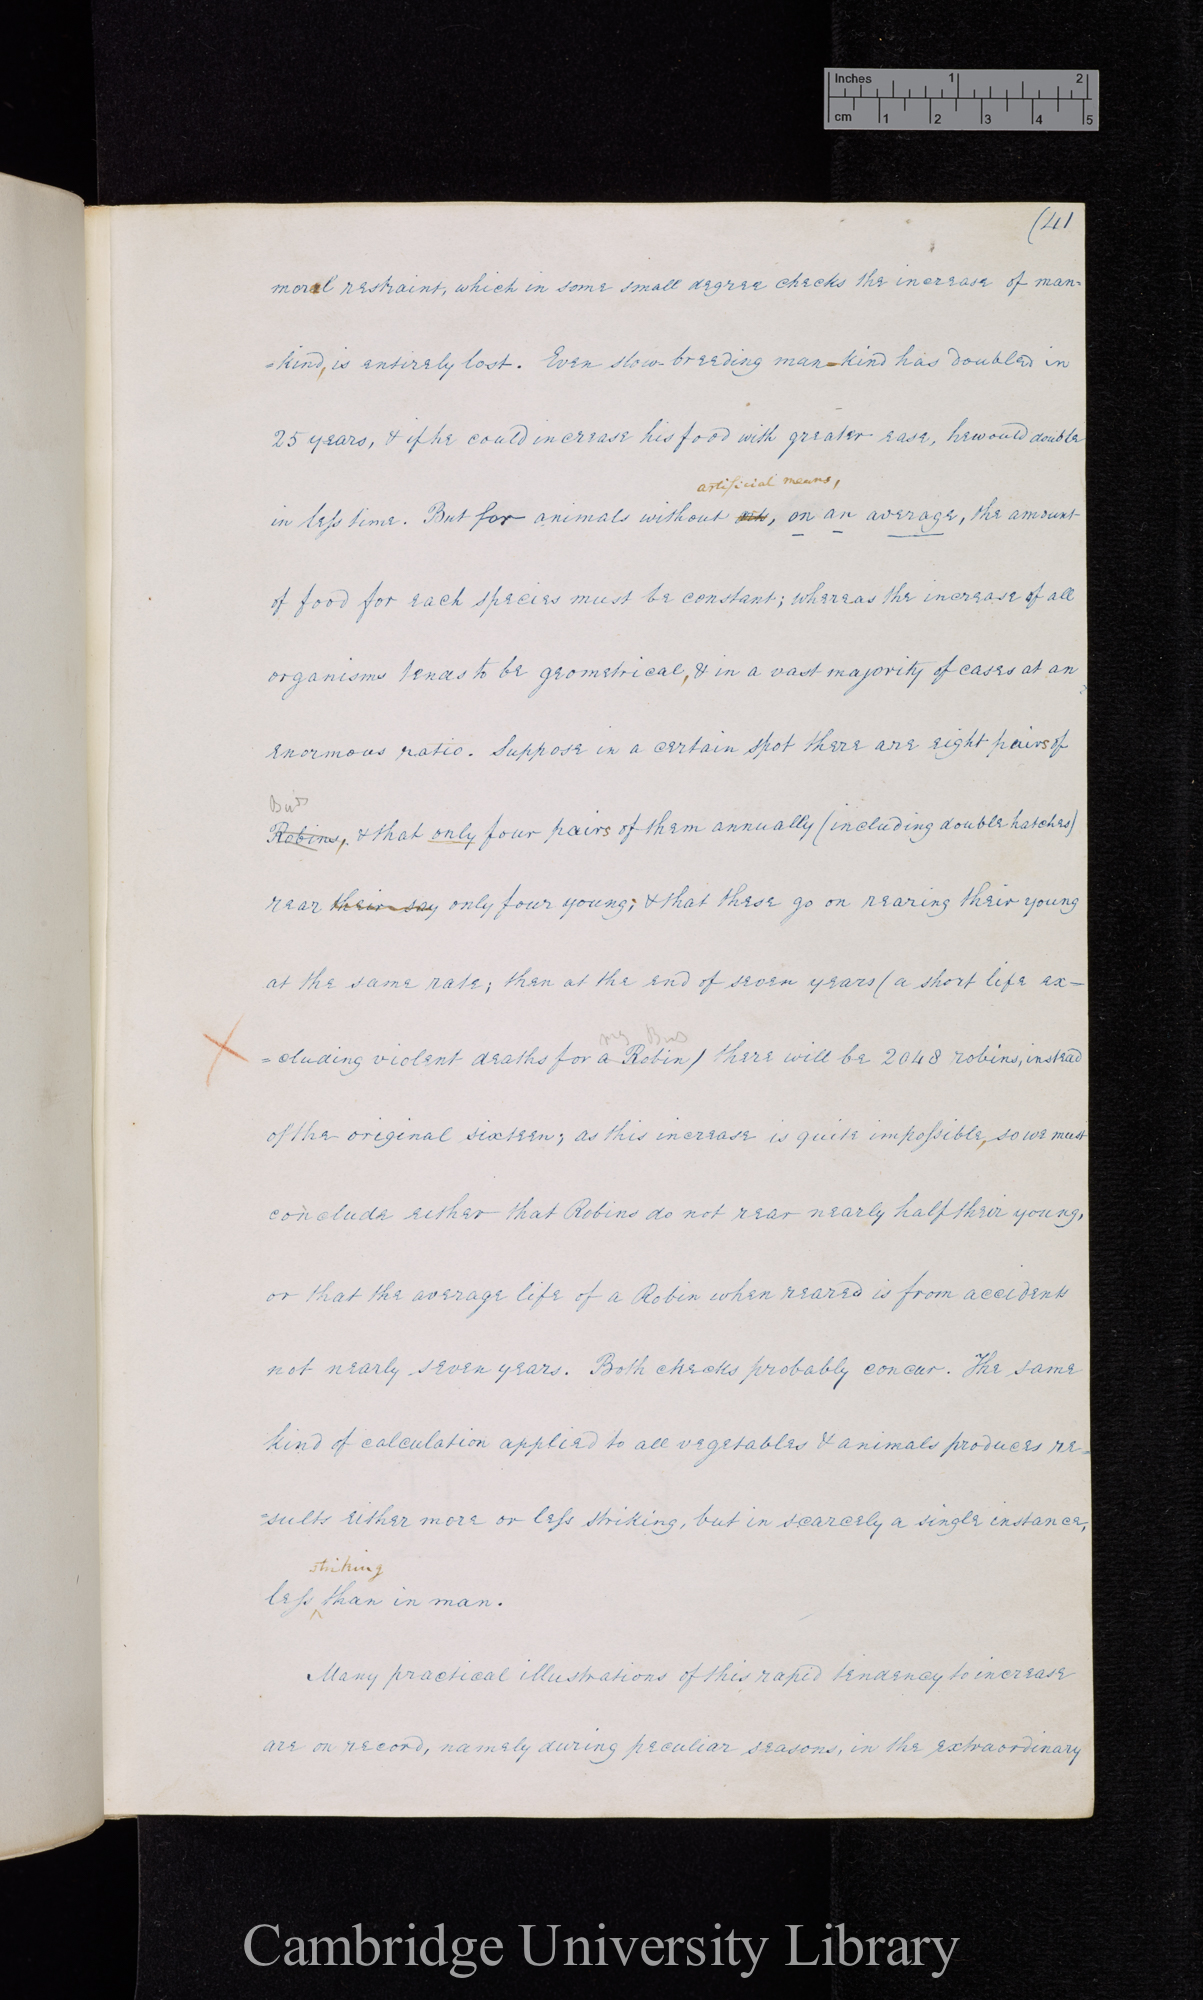 Inches 1 2
cm 1 2 3 4 5
(41
moral restraint, which in some small degree checks the increase of man=
=kind, is entirely lost. Even slow-breeding man-kind has doubled in
25 years, & if he could increase his food with greater ease, he would double
artificial means,
in leſs time. But for animals without arts, on an average, the amount
of food for each species must be constant; whereas the increase of all
organisms tends to be geometrical, & in a vast majority of cases at an
enormous ratio. Suppose in a certain spot there are eight pairs of
Birds
Robins, & that only four pairs of them annually (including double hatches)
rear their say only four young; & that these go on rearing their young
at the same rate; then at the end of seven years (a short life ex-
=cluding violent deaths for a Robin) there will be 2048 robins, instead
of the original sixteen; as this increase is quite impoſsible, so we must
conclude either that Robins do not rear nearly half their young,
or that the average life of a Robin when reared is from accidents
not nearly seven years. Both checks probably concur. The same
kind of calculation applied to all vegetables & animals produces re=
=sults either more or leſs striking, but in scarcely a single instance,
striking
leſs than in man.
Many practical illustrations of this rapid tendency to increase
are on record, namely during peculiar seasons, in the extraordinary
Cambridge University Library